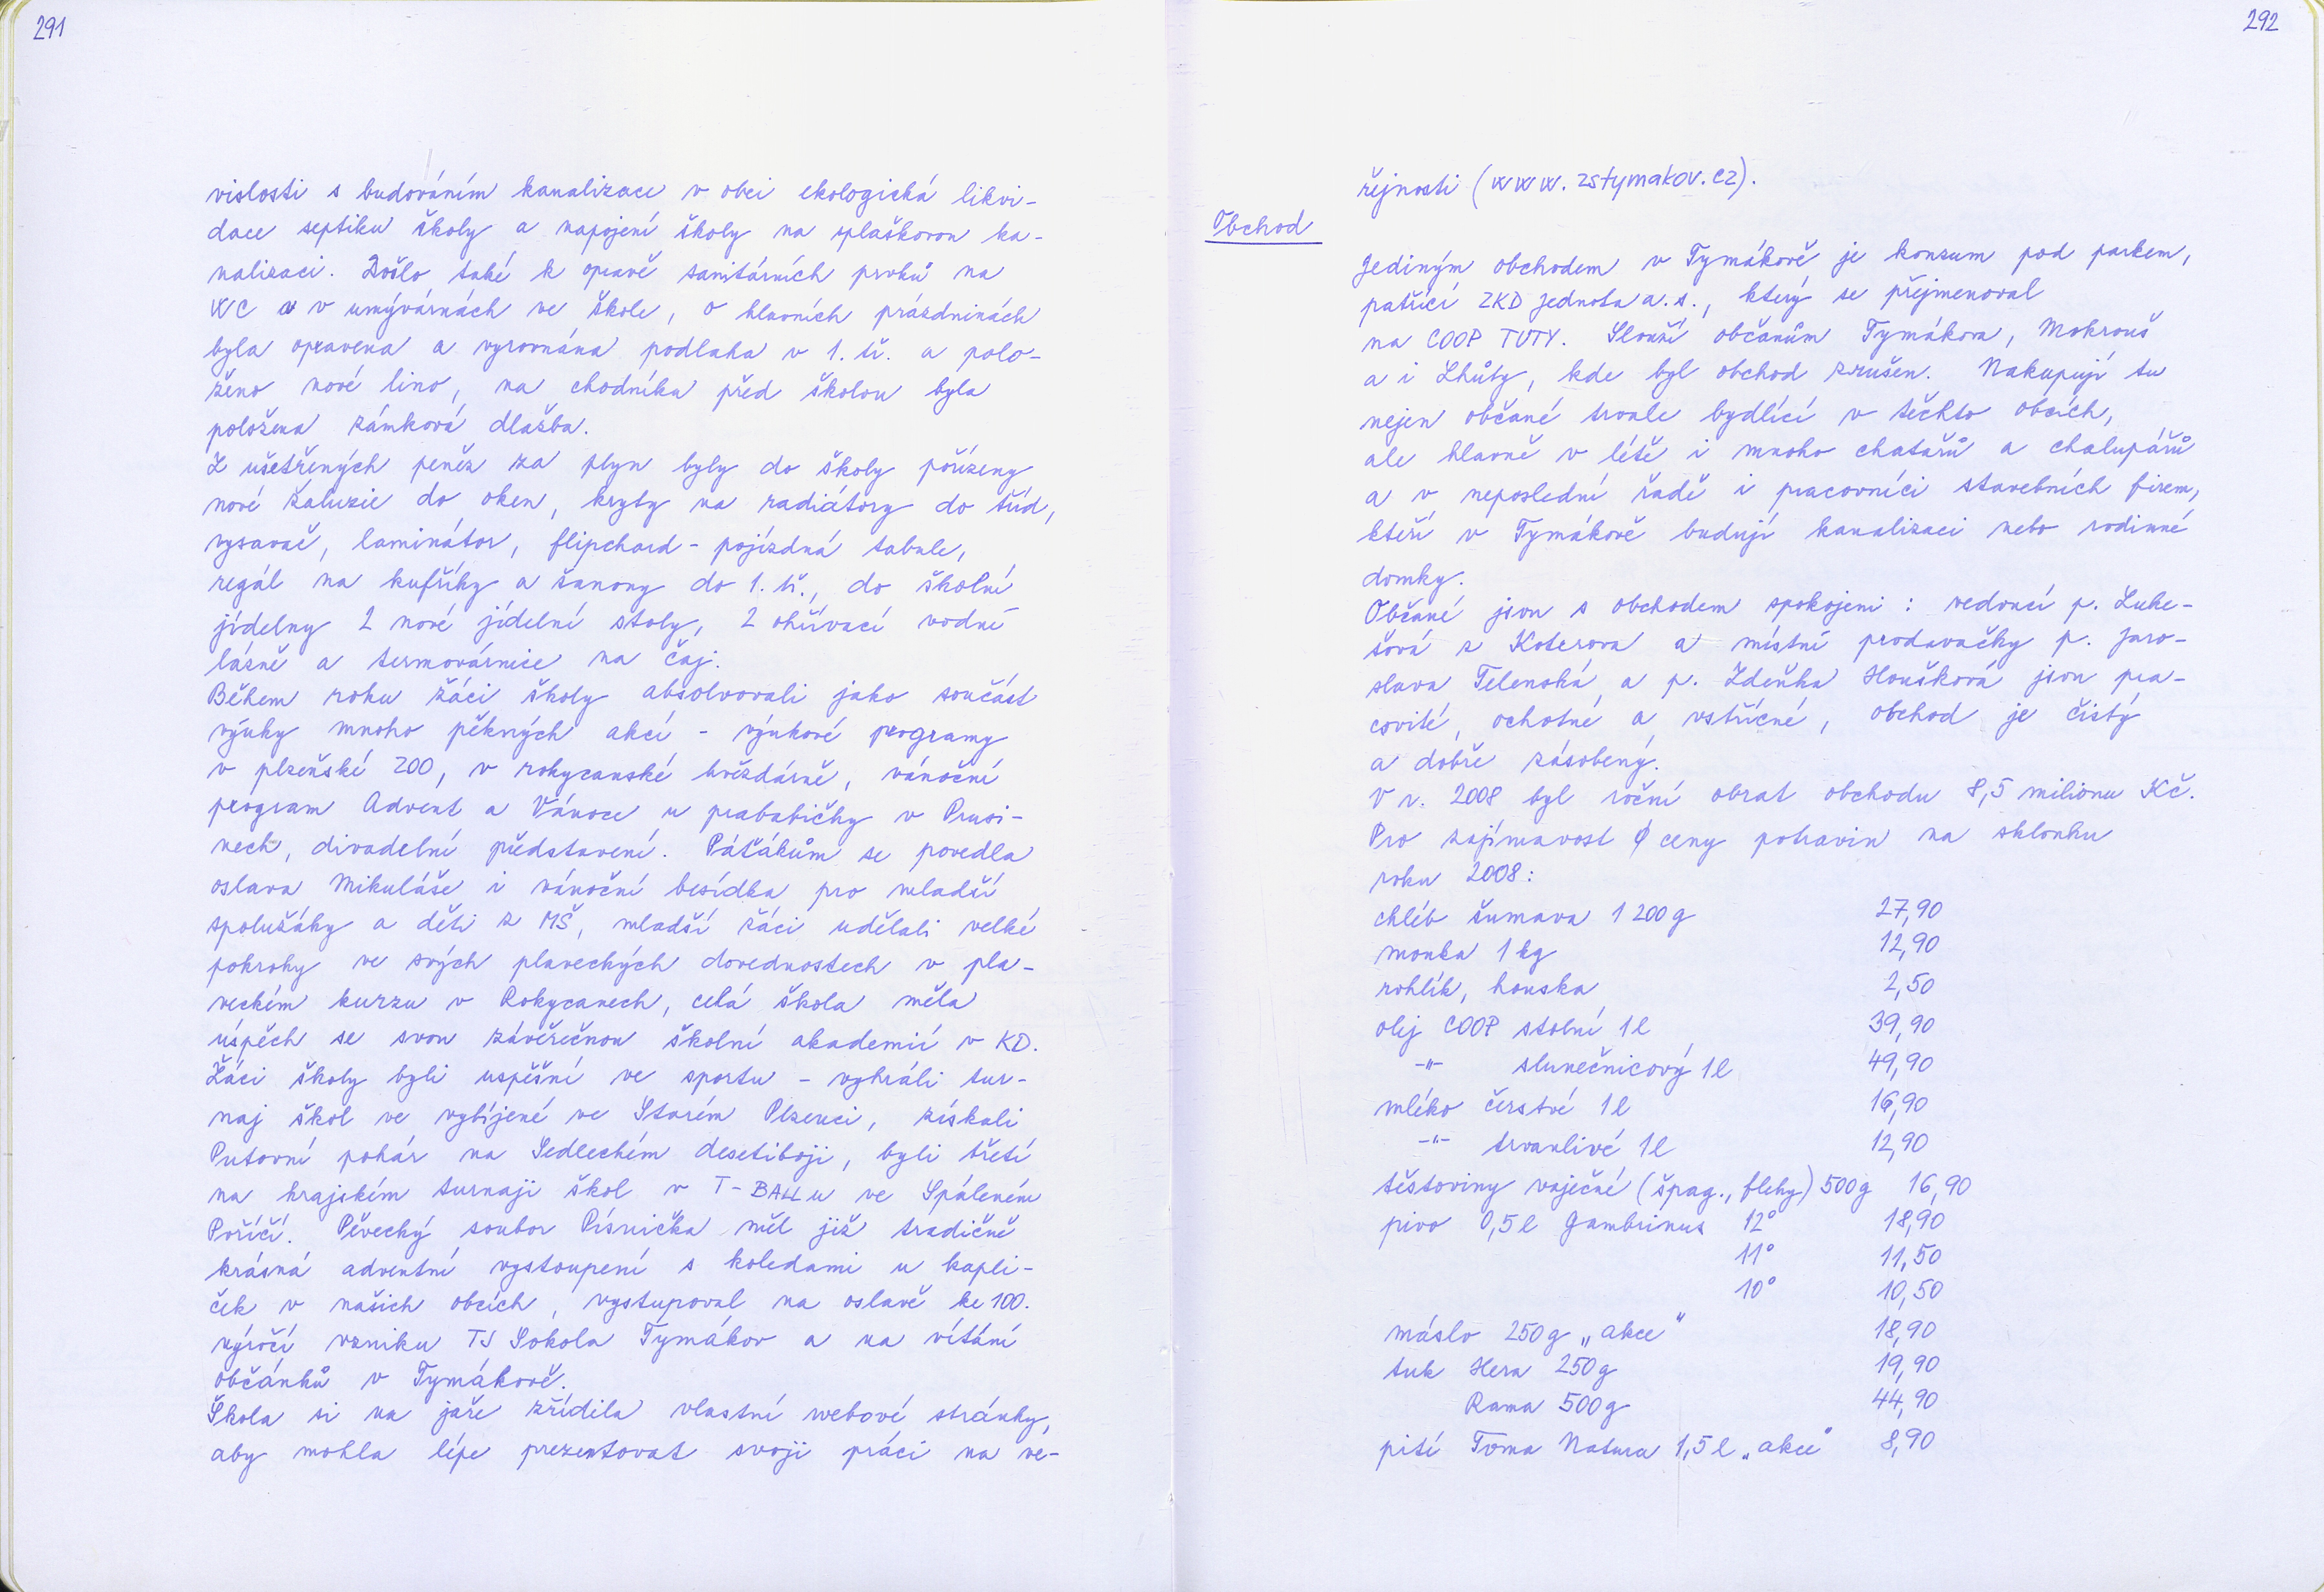 291
vislosti s budováním kanalizace v obci ekologická likvi-
dace septiku školy a napojení školy na splaškovou ka-
nalizaci. Došlo také k opravě sanitárních prvků na
WC a v umývárnách ve škole, o hlavních prázdninách
byla opravena a vyrovnána podlaha v 1. tř. a polo-
ženo nové lino, na chodníku před školou byla
položena zámková dlažba.
Z ušetřených peněz za plyn byly do školy pořízeny
nové žaluzie do oken, kryty na radiátory do tříd,
vysavač, laminátor, flipchard - pojízdná tabule,
regál na kufříky a šanony do 1. tř., do školní
jídelny 2 nové jídelní stoly, 2 ohřívací vodní
lázně a termovárnice na čaj.
Během roku žáci školy absolvovali jako součást
výuky mnoho pěkných akcí - výukové programy
v plzeňské ZOO, v rokycanské hvězdárně, vánoční
program Advent a Vánoce u prababičky v Prusi-
nech, divadelní představení. Páťákům se povedla
oslava Mikuláše i vánoční besídka pro mladší
spolužáky a děti z MŠ, mladší žáci udělali velké
pokroky ve svých plaveckých dovednostech v pla-
veckém kurzu v Rokycanech, celá škola měla
úspěch se svou závěrečnou školní akademií v KD.
Žáci školy byli uspěšní ve sportu - vyhráli tur-
naj škol ve vybíjené ve Starém Plzenci, získali
Putovní pohár na Sedleckém desetiboji, byli třetí
na krajském turnaji škol v T-BALLu ve Spáleném
Poříčí. Pěvecký soubor Písnička měl již tradičně
krásná adventní vystoupení s koledami u kapli-
ček v našich obcích, vystupoval na oslavě ke 100.
výročí vzniku TJ Sokola Tymákov a na vítání
občánků v Tymákově.
Škola si na jaře zřídila vlastní webové stránky,
aby mohla lépe prezentovat svoji práci na ve-
292
řejnosti (www.zstymakov.cz).
Obchod
Jediným obchodem v Tymákově je konzum pod parkem,
patřící ZKD Jednota a.s., který se přejmenoval
na COOP TUTY. Slouží občanům Tymákova, Mokrouš
a i Lhůty, kde byl obchod zrušen. Nakupují tu
nejen občané trvale bydlící v těchto obcích,
ale hlavně v létě i mnoho chatařů a chalupářů
a v neposlední řadě i pracovníci stavebních firem,
kteří v Tymákově budují kanalizaci nebo rodinné
domky.
Občané jsou s obchodem spokojeni: vedoucí p. Luke-
šová z Koterova a místní prodavačky p. Jaro-
slava Telenská a p. Zdeňka Houšková jsou pra-
covité, ochotné a vstřícné, obchod je čistý
a dobře zásobený.
V r. 2008 byl roční obrat obchodu 8,5 milionu Kč.
Pro zajímavost ϕ ceny potravin na sklonku
roku 2008:
chléb šumava 1 200 g 27,90
mouka 1 kg 12,90
rohlík, houska 2,50
olej COOP stolní 1 l 39,90
-"- slunečnicový 1 l 49,90
mléko čerstvé 1 l 16,90
-"- trvanlivé 1 l 12,90
těstoviny vaječné (špag., fleky) 500 g 16,90
pivo 0,5 l Gambrinus 12° 18,90
11° 11,50
10° 10,50
máslo 250 g „akce" 18,90
tuk Hera 250 g 19,90
Rama 500 g 44,90
pití Toma Natura 1,5 l „akce" 8,90